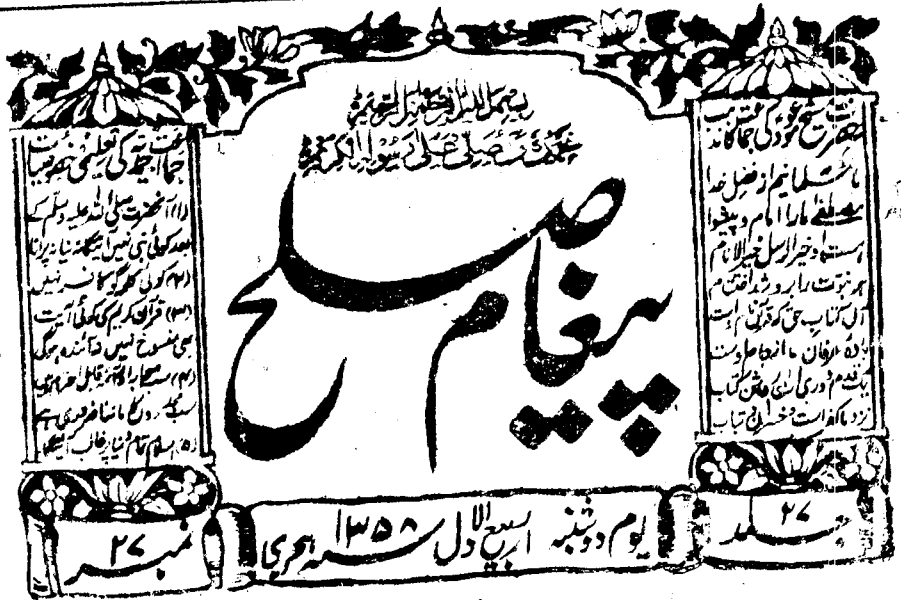 بسم اللہ الرحمن الرحیم
نحمدہ و نصلی علی رسولہ الکریم
پیغام صلح
حضرت مسیح موعود کی جماعت کا مذہب
ما مسلمانیم از فضل خدا
مصطفیٰ مارا امام و پیشوا
ہست او خیر الرسل خیر الانام
ہر نبوت را بروشد اختتام
آں کتاب حق کہ قرآں نام اوست
بادۂ عرفان ما از جام اوست
یک قدم دوری ازاں روشن کتاب
نزد ما کفر است و خسران و تباب
جماعت احمدیہ کی تعلیمی خصوصیات
(۱) آنحضرت صلی اللہ علیہ وسلم کے
بعد کوئی نبی نہیں آئیگا نہ نیا نہ پرانا
(۲) کوئی کلمہ گو کافر نہیں
(۳) قرآن کریم کی کوئی آیت
بھی منسوخ نہیں نہ آئندہ ہوگی
(۴) سب صحابہ اور آئمہ قابل احترام ہیں
سب مجددوں کا ماننا ضروری ہے
(۵) اسلام تمام دنیا پر غالب آئیگا
جلد ۲۷
یوم دوشنبہ ربیع الاول سنہ ۱۳۵۸ ہجری
نمبر ۲۷